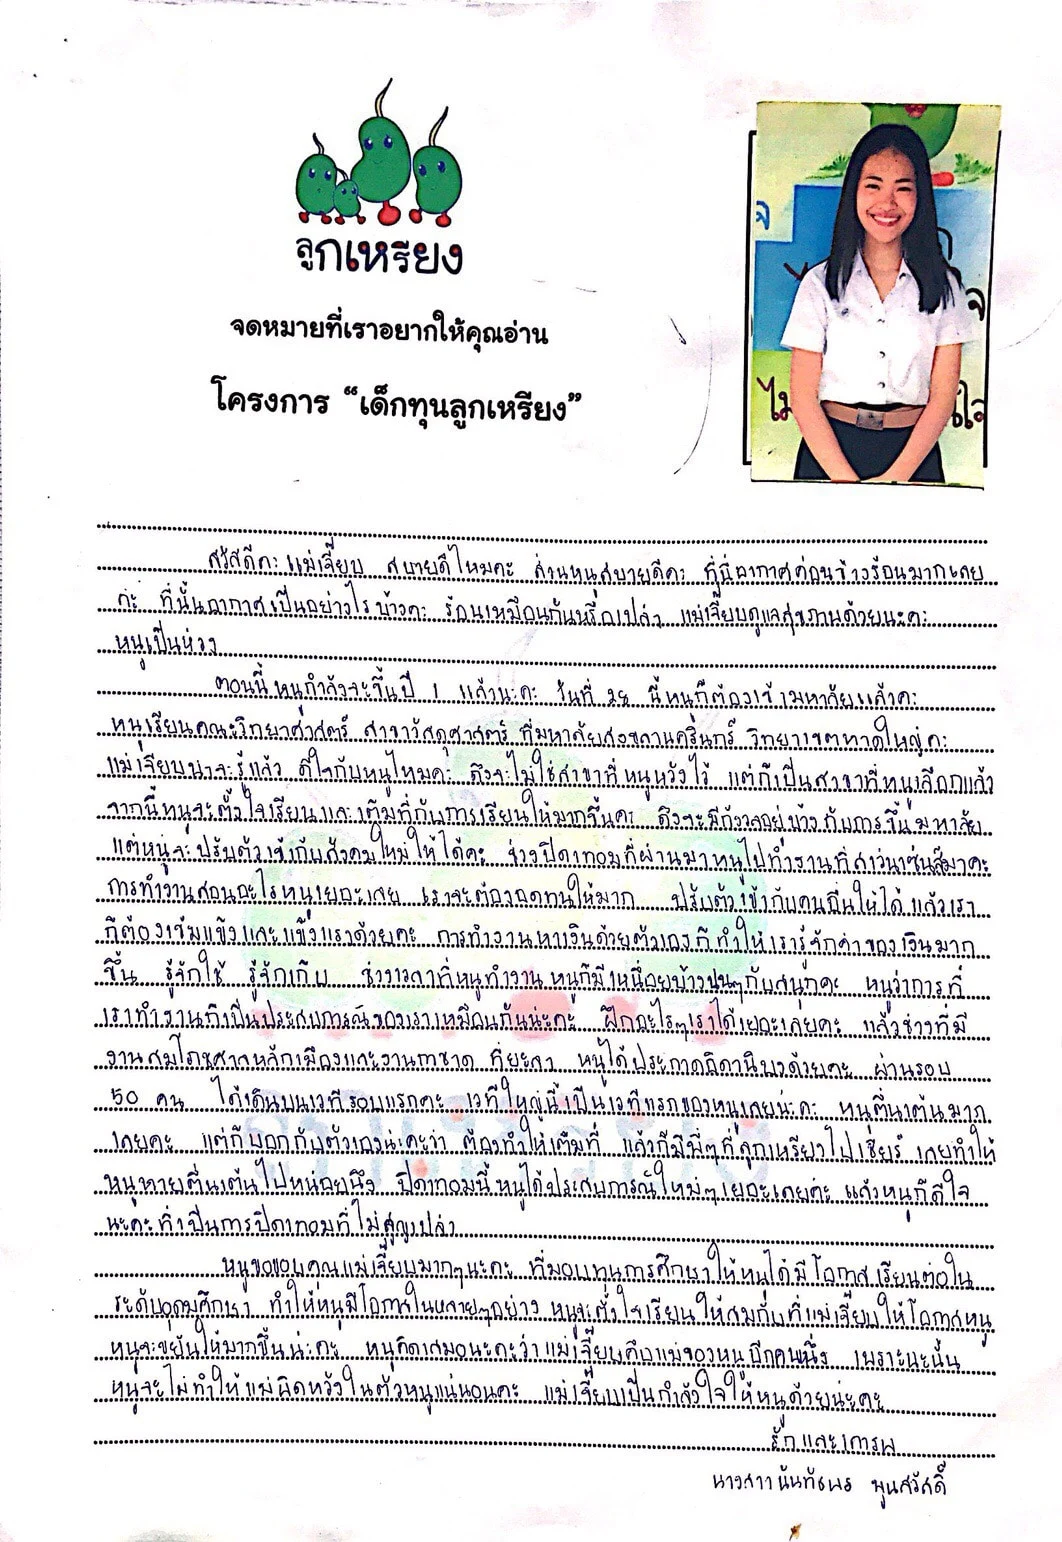 ลูกเหรียง
จดหมายที่เราอยากให้คุณอ่าน
โครงการ “เด็กทุนลูกเหรียง”
สวัสดีคะ แม่เจี๊ยบ สบายดีไหมคะ ส่วนหนูสบายดีคะ ที่นี่อากาศค่อนข้างร้อนมากเลย
ค่ะ ที่นั้นอากาศเป็นอย่างไรบ้างคะ ร้อนเหมือนกันหรือเปล่า แม่เจี๊ยบดูแลสุขภาพด้วยนะคะ
หนูเป็นห่วง
ตอนนี้หนูกำลังจะขึ้นปี 1 แล้วนะคะ วันที่ 28 นี้หนูก็ต้องเข้ามหาลัยแล้วคะ
หนูเรียนคณะวิทยาศาสตร์ สาขาวัสดุศาสตร์ ที่มหาลัยสงขลานครินทร์ วิทยาเขตหาดใหญ่คะ
แม่เจี๊ยบน่าจะรู้แล้ว ดีใจกับหนูไหมคะ ถึงจะไม่ใช่สาขาที่หนูหวังไว้ แต่ก็เป็นสาขาที่หนูเลือกแล้ว
จากนี้หนูจะตั้งใจเรียนและเต็มที่กับการเรียนให้มากขึ้นคะ ถึงจะมีกังวลอยู่บ้างกับการขึ้นมหาลัย
แต่หนูจะปรับตัวเข้ากับสังคมใหม่ให้ได้คะ ช่วงปิดเทอมที่ผ่านมาหนูไปทำงานที่สเวนเซ่นส์มาคะ
การทำงานสอนอะไรหนูเยอะเลย เราจะต้องอดทนให้มาก ปรับตัวเข้ากับคนอื่นให้ได้ แล้วเรา
ก็ต้องเข้มแข็งและแข็งแรงด้วยคะ การทำงานหาเงินด้วยตัวเองก็ทำให้เรารู้จักค่าของเงินมาก
ขึ้น รู้จักใช้ รู้จักเก็บ ช่วงเวลาที่หนูทำงาน หนูก็มีเหนื่อยบ้างปนๆกับสนุกคะ หนูว่าการที่
เราทำงานก็เป็นประสบการณ์ของเราเหมือนกันน่ะคะ ฝึกอะไรๆเราได้เยอะเลยคะ แล้วช่วงที่มี
งานสมโภชศาลหลักเมืองและงานกาชาด ที่ยะลา หนูได้ประกวดธิดานิบงด้วยคะ ผ่านรอบ
50 คน ได้เดินบนเวทีรอบแรกคะ เวทีใหญ่นี้เป็นเวทีแรกของหนูเลยน่ะคะ หนูตื่นเต้นมาก
เลยคะ แต่ก็บอกกับตัวเองน่ะคะว่า ต้องทำให้เต็มที่ แล้วก็มีพี่ๆที่ลูกเหรียงไปเชียร์ เลยทำให้
หนูหายตื่นเต้นไปหน่อยนึง ปิดเทอมนี้หนูได้ประสบการณ์ใหม่ๆเยอะเลยค่ะ แล้วหนูก็ดีใจ
นะคะที่เป็นการปิดเทอมที่ไม่สูญเปล่า
หนูขอขอบคุณแม่เจี๊ยบมากๆนะคะ ที่มอบทุนการศึกษาให้หนูได้มีโอกาสเรียนต่อใน
ระดับอุดมศึกษา ทำให้หนูมีโอกาสในหลายๆอย่าง หนูจะตั้งใจเรียนให้สมกับที่แม่เจี๊ยบให้โอกาสหนู
หนูจะขยันให้มากขึ้นน่ะคะ หนูคิดเสมอนะคะว่าแม่เจี๊ยบคือแม่ของหนูอีกคนนึ่ง เพราะฉะนั้น
หนูจะไม่ทำให้แม่ผิดหวังในตัวหนูแน่นอนคะ แม่เจี๊ยบเป็นกำลังใจให้หนูด้วยน่ะคะ
รักและเคารพ
นางสาว นันทัชพร พูนสวัสดิ์